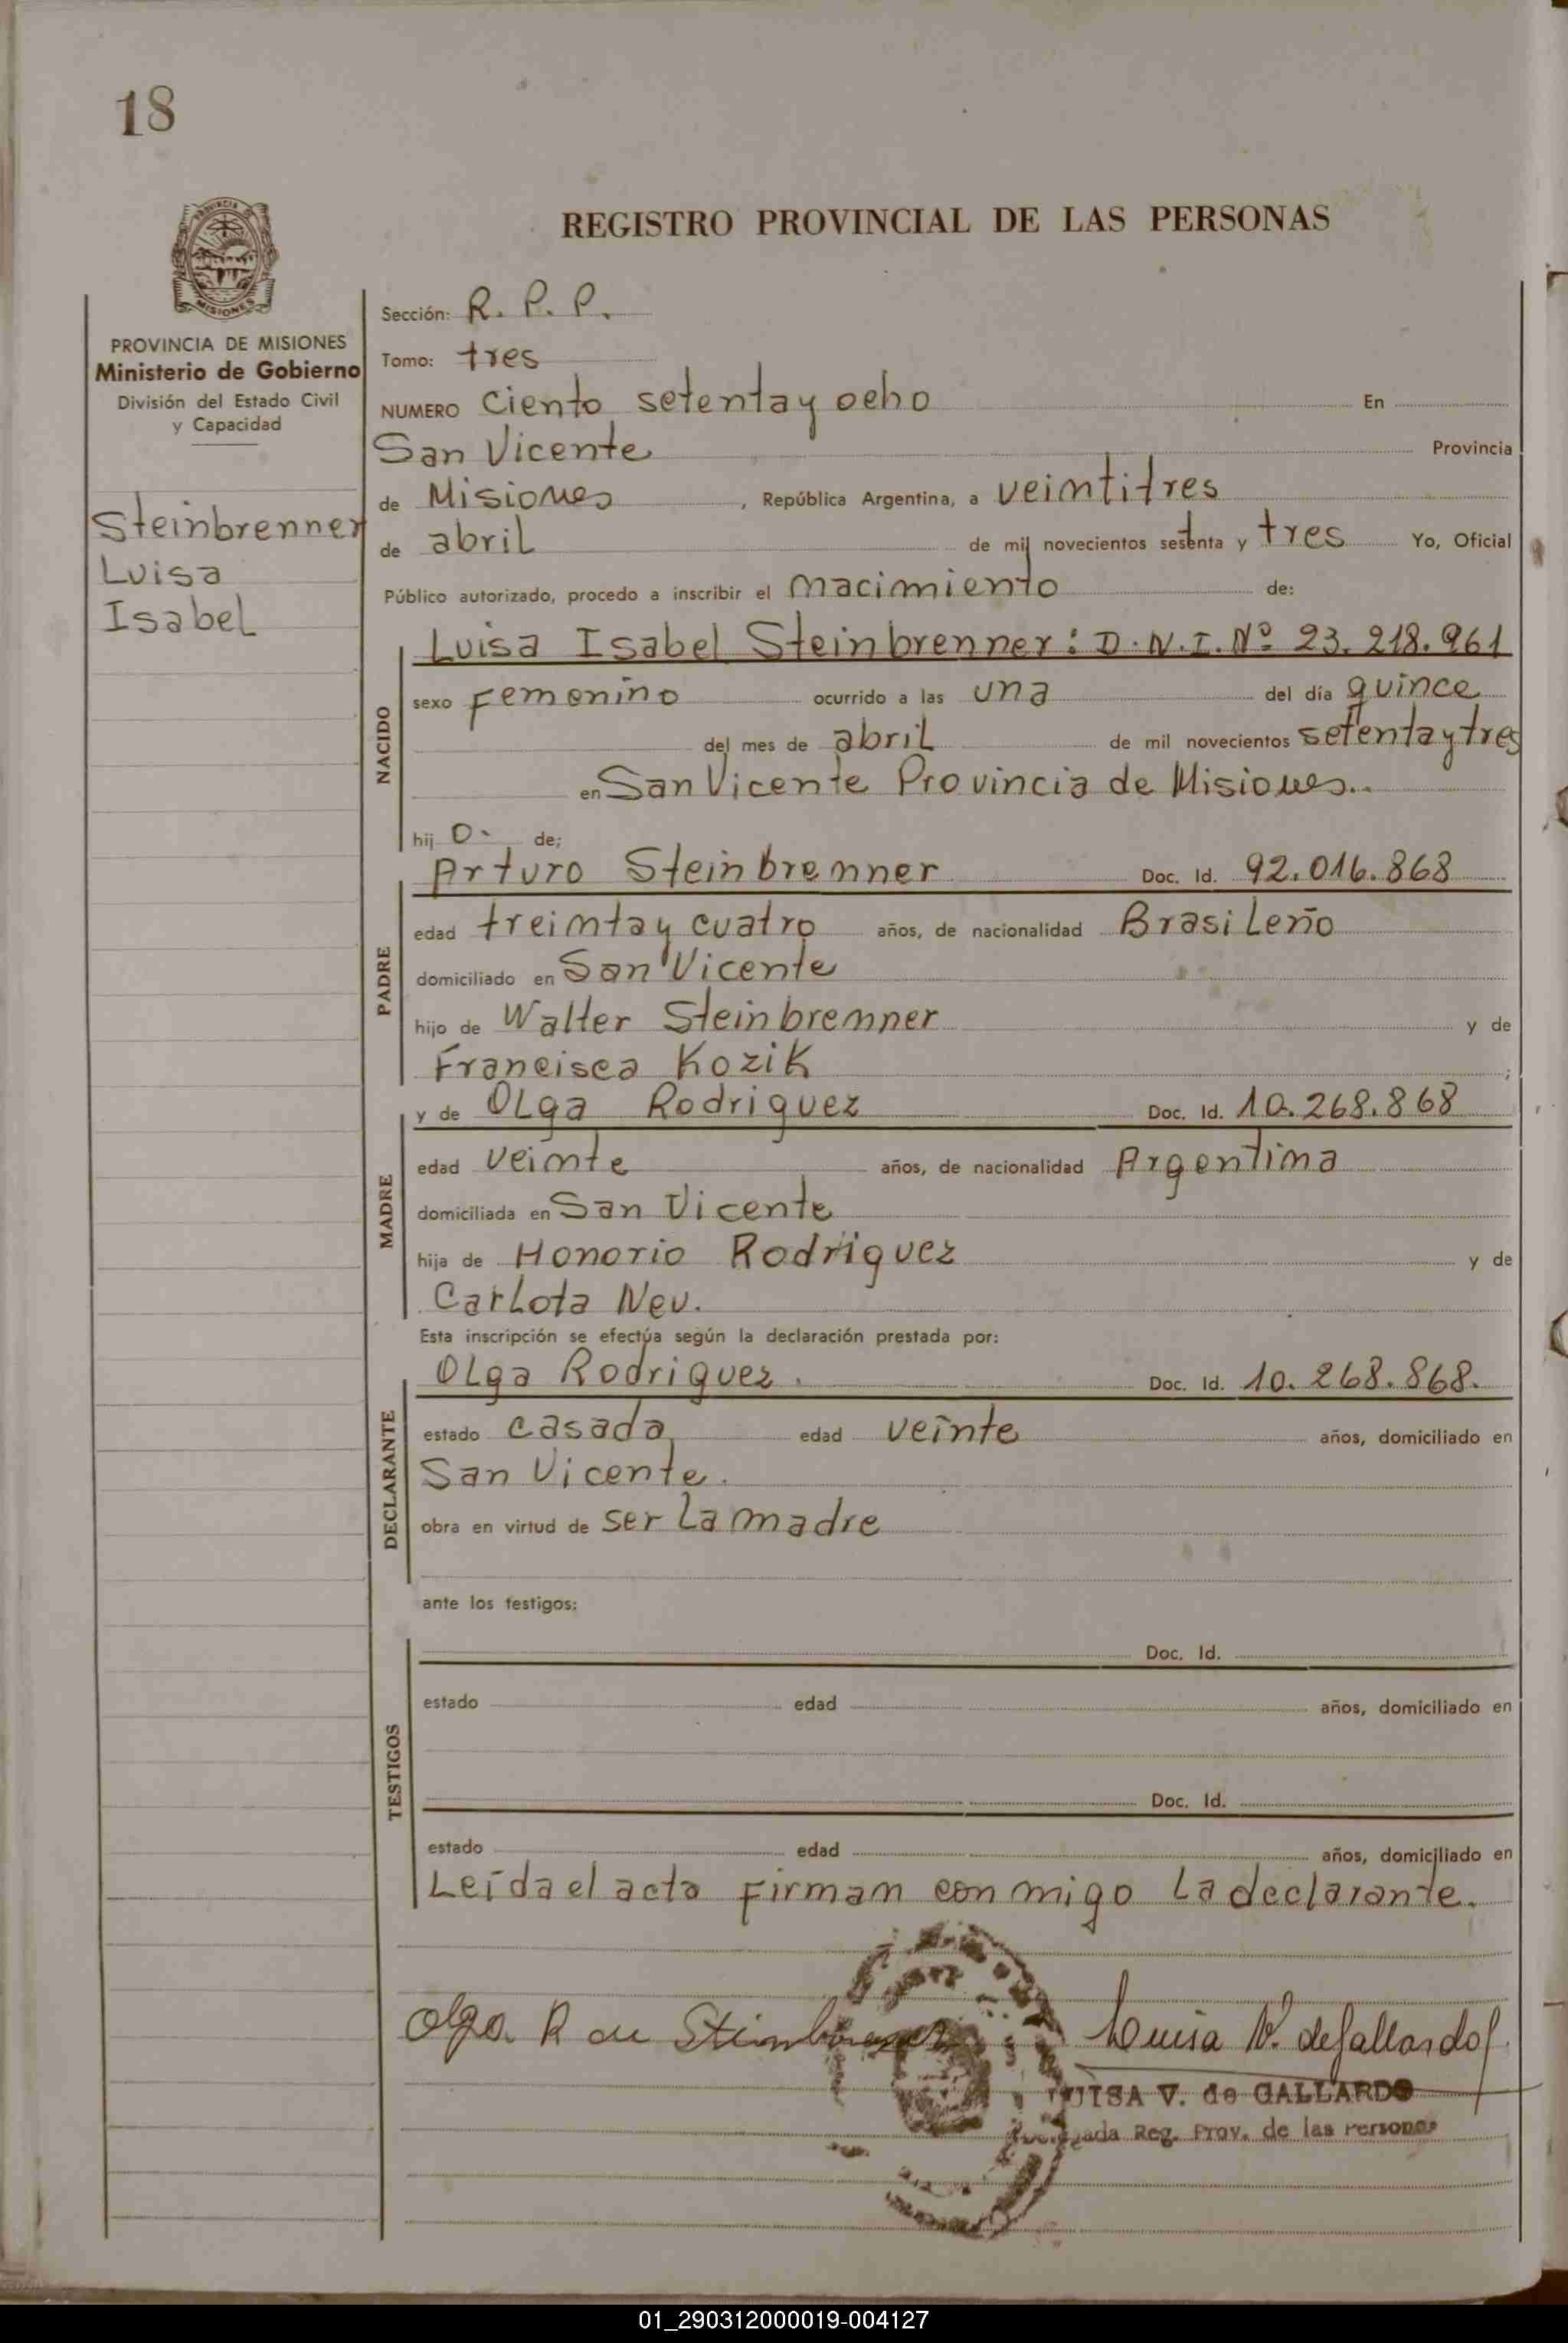 18
REGISTRO PROVINCIAL DE LAS PERSONAS
PROVINCIA DE MISIONES
Ministerio de Gobierno
División del Estado Civil
y Capacidad
Steinbrenner
Luisa
Isabel
Sección: R. P. P.
Tomo: tres
NUMERO ciento setenta y ocho En
San Vicente Provincia
de Misiones, República Argentina, a veintitres
de abril de mil novecientos setenta y tres Yo, Oficial
Público autorizado, procedo a inscribir el nacimiento de:
NACIDO
Luisa Isabel Steinbrenner: D.N.I. Nº 23.218.961
sexo Femenino ocurrido a las una del día quince
del mes de abril de mil novecientos setenta y tres
en San Vicente Provincia de Misiones..
hij o. de;
PADRE
Arturo Steinbrenner Doc. Id. 92.016.868
edad treinta y cuatro años, de nacionalidad Brasileño
domiciliado en San Vicente
hijo de Walter Steinbrenner y de
Francisca Kozik ;
MADRE
y de Olga Rodriguez Doc. Id. 10.268.868
edad veinte años, de nacionalidad Argentina
domiciliada en San Vicente
hija de Honorio Rodriguez y de
Carlota Neu.
Esta inscripción se efectúa según la declaración prestada por:
DECLARANTE
Olga Rodriguez. Doc. Id. 10.268.868.
estado casada edad veinte años, domiciliado en
San Vicente.
obra en virtud de ser la madre
ante los testigos:
TESTIGOS
Doc. Id.
estado edad años, domiciliado en
Doc. Id.
estado edad años, domiciliado en
Leída el acta firman conmigo la declarante.
Olga R de Steinbrenner Luisa V. de Gallardo
LUISA V. de GALLARDO
Reg. Prov. de las Personas
01_290312000019-004127